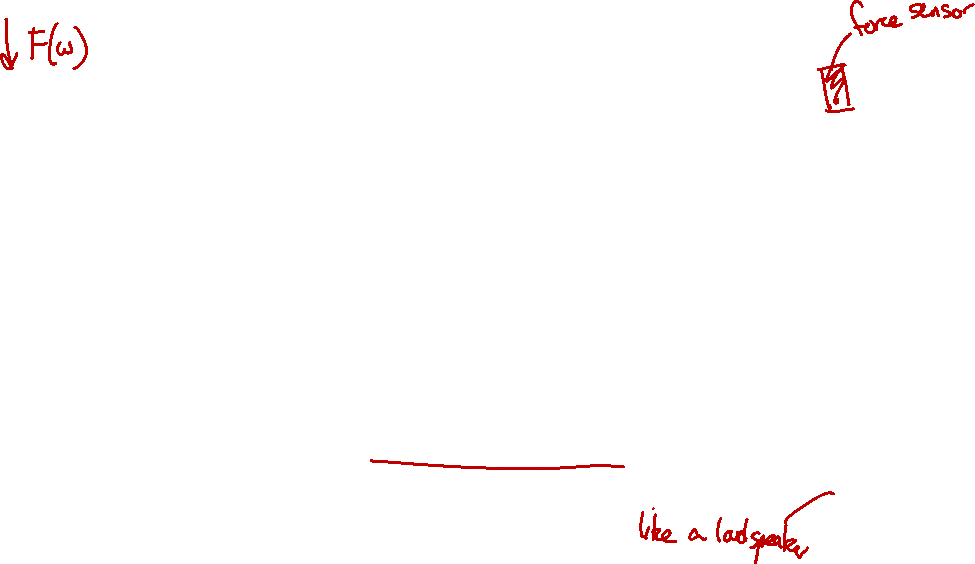 force sensor
F(ω)
like a loudspeaker